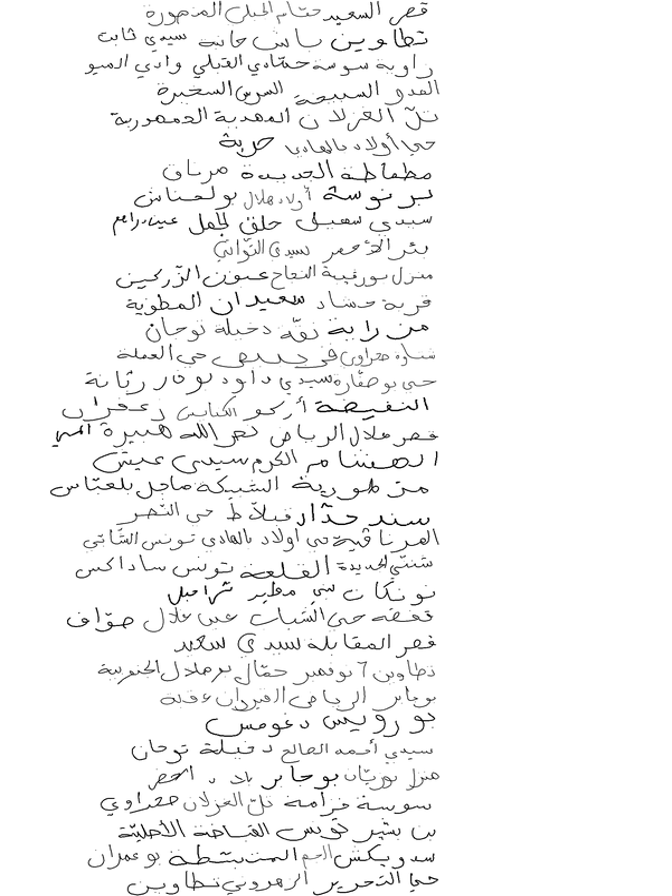 قصر السعيد حشام الجبلي المنصورة
تطاوين باش حانبة سيدي ثابت
زاوية سوسة حمادي القبلي وادي الميو
السبيعة السرس السخيرة
تل الغزلان المهدية الجمهورية
حي أولاد بالهادي حربة
مطماطة الجديدة مرناق
برنوسة أولاد هلال بولحناش
سيدي سهيل حلق الجمل عين دراهم
بئر الأحمر سيدي التواتي
منزل بورقيبة النجاح عيون الزركين
قرية حشاد سعيدان المطوية
نقة دخيلة توجان
حي العملة
حي بوصفارة سيدي داود بوفار رتانة
النفيضة أركو الكنايس زعفران
قصر هلال الرياض نصر الله هبيرة
الهشام الكرم سيدي عيش
الشبيكة ماجل بلعباس
سند حدار قبلاط حي النصر
المرناقية حي أولاد بالهادي تونس الشابي
شنني الجديدة القلعة تونس ساداكس
نونكان سي مطير شرامبل
قفصة حي الشباب عين علال صواف
قصر المقابلة سيدي سعيد
تطاوين 7 نوفمبر حفال بئر ملال الجنوبية
بوجابر الرياض القيروان عقبة
بورويس دغومس
سيدي أحمد الصالح دخيلة توجان
منزل نوريان بوجابر
سوسة خزامة تل الغزلان صحراوي
بن بشير تونس القباضة الأصلية
سدويكش المتبسطة بوعمران
حي التحرير الزهروني تطاوين